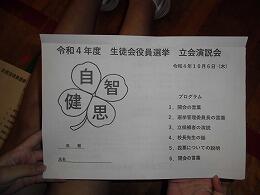 令和４年度　生徒会役員選挙　立会演説会
令和４年１０月６日（木）
自
智
健
思
プログラム
１、開会の言葉
２、選挙管理委員長の言葉
３、立候補者の演説
４、校長先生の話
５、投票についての説明
６、閉会の言葉
年　組
氏名